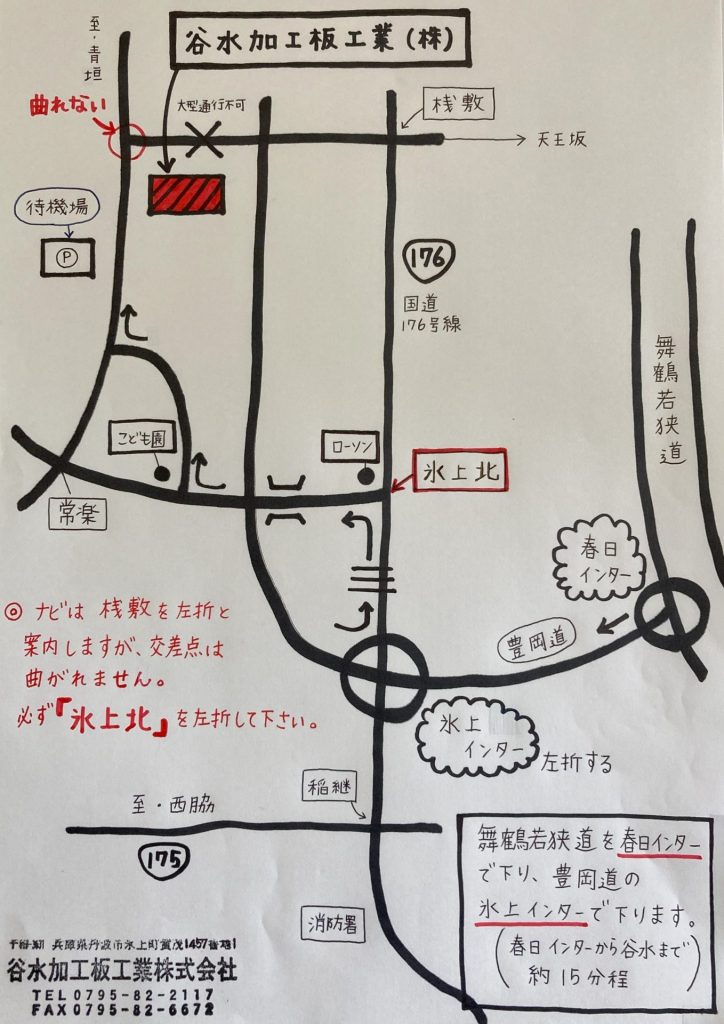 至・青垣
谷水加工板工業(株)
曲れない
大型通行不可
桟敷
天王坂
待機場
P
176
国道
176号線
舞鶴若狭道
こども園
ローソン
氷上北
常楽
春日
インター
豊岡道
◎ ナビは 桟敷を左折と
案内しますが、交差点は
曲がれません。
必ず『氷上北』を左折して下さい。
氷上
インター
左折する
稲継
至・西脇
175
消防署
舞鶴若狭道を春日インター
で下り、豊岡道の
氷上インターで下ります。
(春日インターから谷水まで
約15分程)
兵庫県丹波市氷上町賀茂1457番地1
谷水加工板工業株式会社
TEL 0795-82-2117
FAX 0795-82-6672